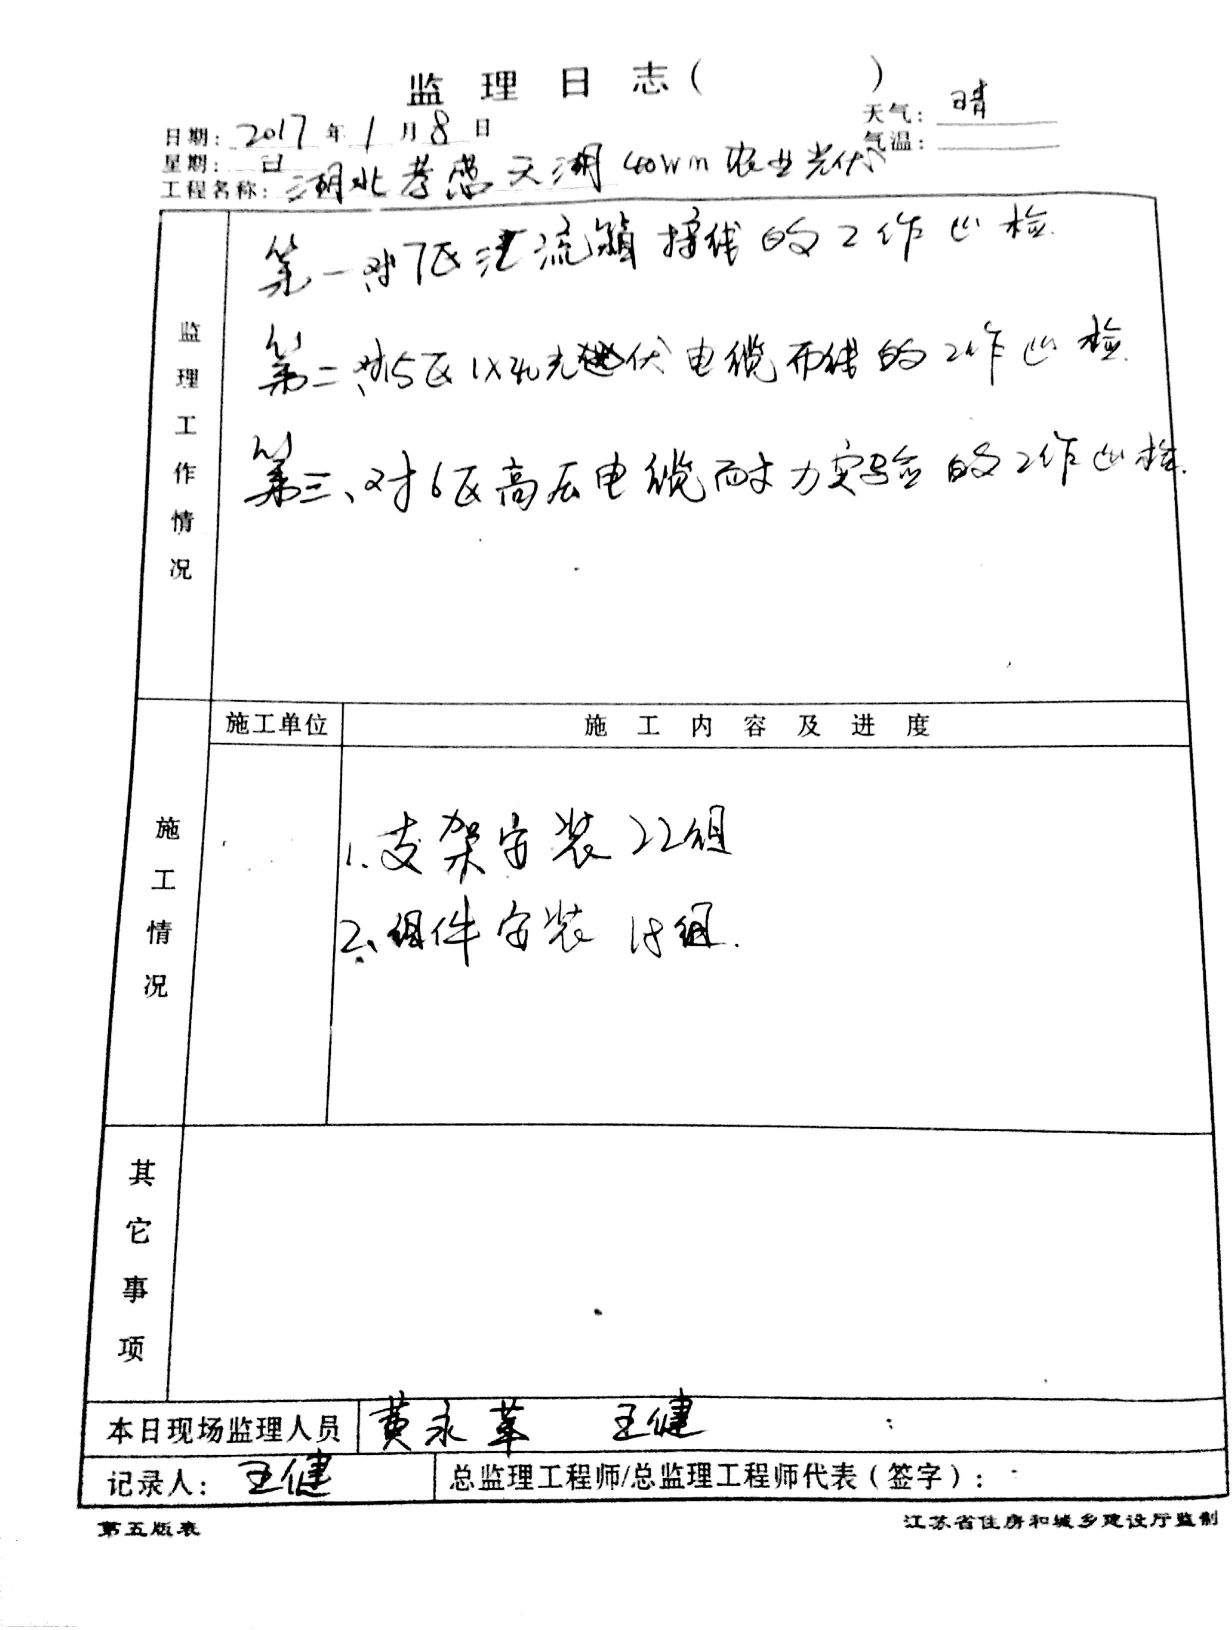 监理日志(        )
日期: 2017年1月8日
天气: 晴
星期: 日
气温:
工程名称: 湖北孝感天湖40wm农业光伏
监理工作情况
第一对7区汇流箱接线的工作巡检.
第二、对5区 光伏电缆布线的工作巡检.
第三、对6区高压电缆耐力实验的工作巡检.
施工情况
施工单位 施工内容及进度
1、支架安装22组
2、组件安装18组.
其它事项
本日现场监理人员 黄永革 王健
记录人: 王健 总监理工程师/总监理工程师代表(签字):
第五版表 江苏省住房和城乡建设厅监制